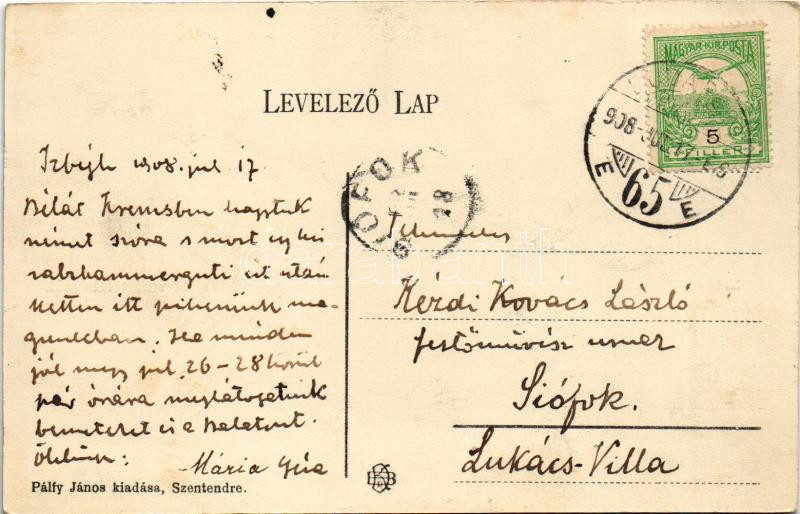 LEVELEZŐ LAP
MAGYAR KIR. POSTA
5
FILLÉR
65
E E
SIÓFOK
Izbégh 1908. jul 17.
Bélát Kremsben hagytuk
német szóra s most egy kis
salzkammerguti út után
ketten itt pihenünk ma-
gunkban. Ha minden
jól megy jul. 26-28 körül
pár órára meglátogatunk
benneteket is a Balatont.
Ölelünk:
Mária Géza
Kézdi Kovács László
festőművész urnak
Siófok.
Lukács-Villa
Pálfy János kiadása, Szentendre.